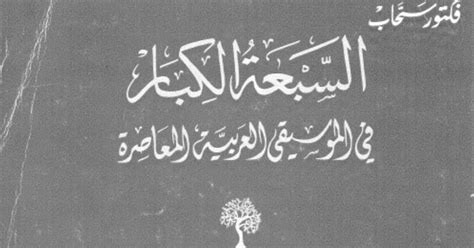 فكتور سحّاب
السَّبعَة الكِبَار
في الموسيقى العربية المعاصرة